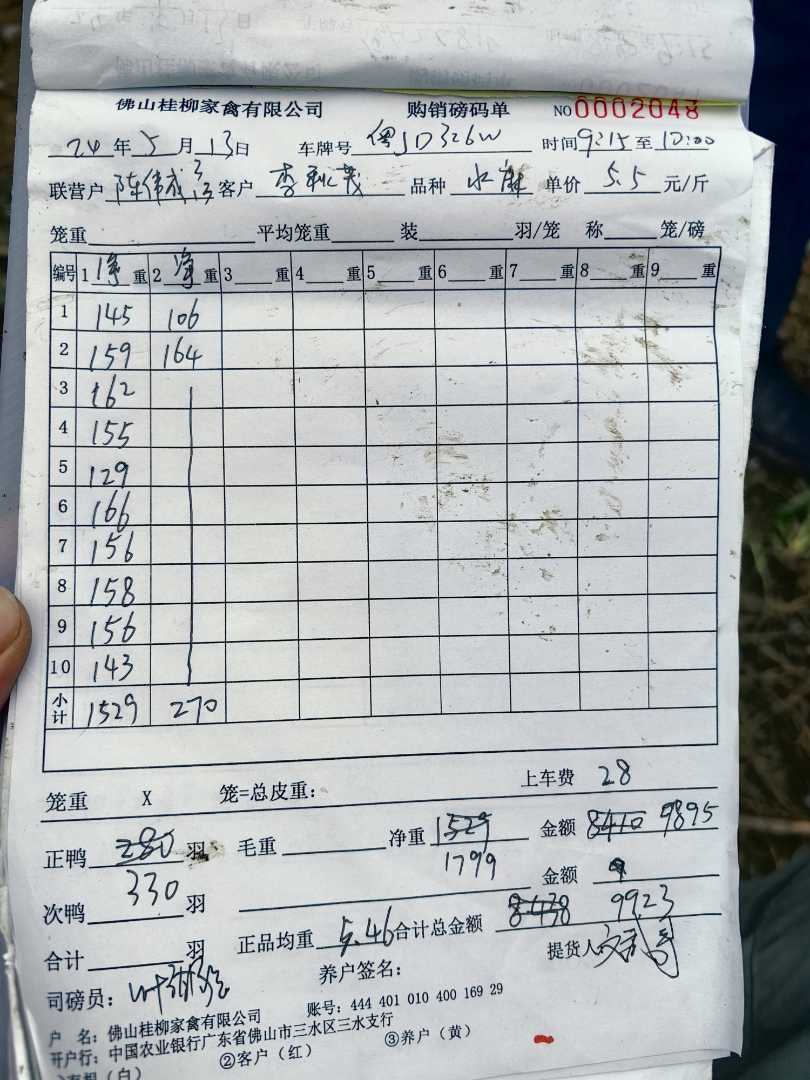 佛山桂柳家禽有限公司 购销磅码单 NO 0002048
24年5月13日 车牌号 粤JD326W 时间9:15至10:00
联营户 陈伟成 客户 李 茂 品种 水麻 单价 5.5 元/斤
笼重 平均笼重 装 羽/笼 称 笼/磅
编号 1 净 重 2 净 重 3 重 4 重 5 重 6 重 7 重 8 重 9 重
1 145 106
2 159 164
3 162
4 155
5 129
6 166
7 156
8 158
9 156
10 143
小计 1529 270
笼重 X 笼=总皮重: 上车费 28
正鸭 280 羽 毛重 净重 1529 金额 8410 9895
330 1799
次鸭 羽 金额
合计 羽 正品均重 5.46 合计总金额 8438 9923
司磅员: 叶 养户签名: 提货人
户 名: 佛山桂柳家禽有限公司 账号: 444 401 010 400 169 29
开户行: 中国农业银行广东省佛山市三水区三水支行
(白) ②客户(红) ③养户(黄)